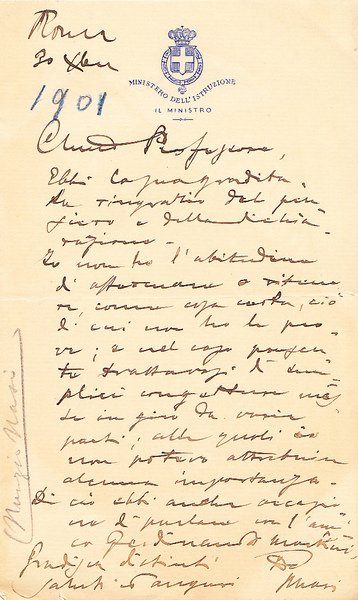 Roma
30 Xbre
1901
MINISTERO DELL'ISTRUZIONE
IL MINISTRO
Chiaro Professore,
Ebbi la sua gradita.
La ringrazio del pen-
siero e della dichia-
razione.
Io non ho l'abitudine
di affermare o ritene-
re, come cosa certa, ciò
di cui non ho le pro-
ve; e nel caso presen-
te trattavasi di sem-
plici congetture mes-
se in giro da varie
parti, alle quali io
non potevo attribuire
alcuna importanza.
Di ciò ebbi anche occasio-
ne di parlare con l'ami-
co Ferdinando Martini.
Gradisca distinti
saluti ed auguri
Nasi
Nunzio Nasi